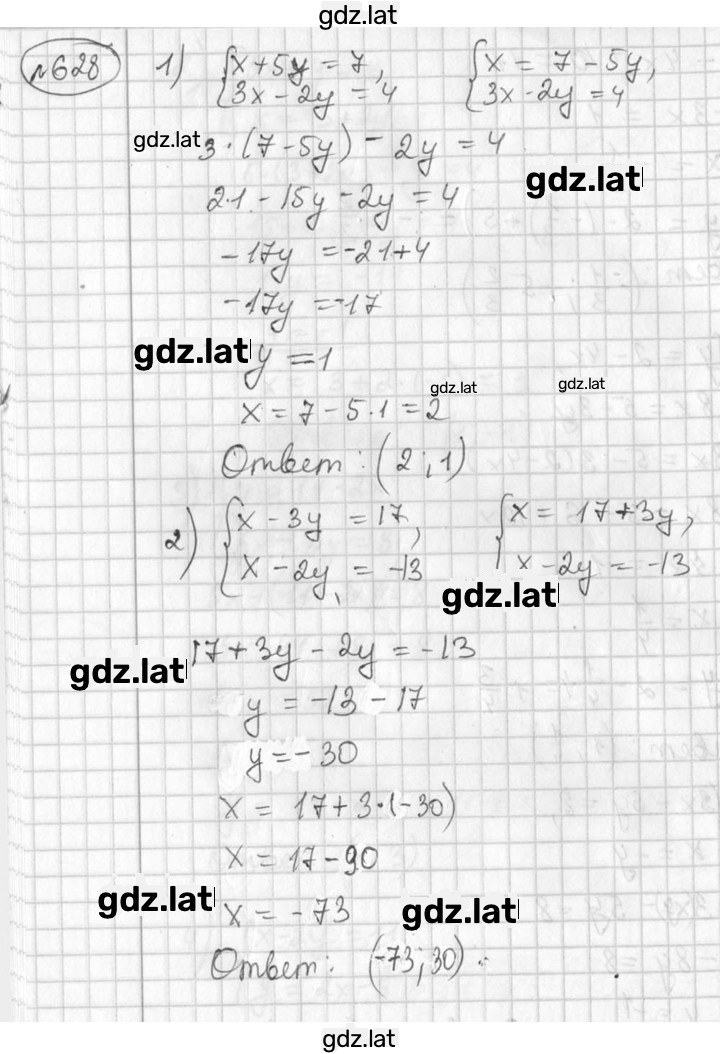 gdz.lat
№628 1) {x + 5y = 7, {x = 7 - 5y,
{3x - 2y = 4 {3x - 2y = 4
gdz.lat 3·(7-5y) - 2y = 4
gdz.lat
21 - 15y - 2y = 4
-17y = -21+4
-17y = -17
gdz.lat y = 1
gdz.lat gdz.lat
x = 7 - 5·1 = 2
Ответ: (2; 1)
2) {x - 3y = 17, {x = 17+3y,
{x - 2y = -13 {x - 2y = -13
gdz.lat
17 + 3y - 2y = -13
gdz.lat
y = -13 - 17
y = -30
x = 17 + 3·(-30)
x = 17 - 90
gdz.lat x = -73 gdz.lat
Ответ: (-73; 30).
gdz.lat